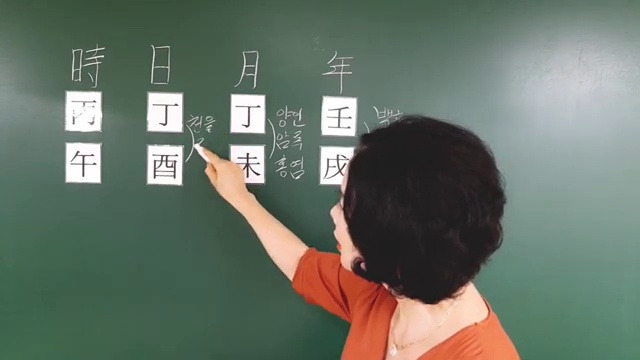 時 日 月 年
丙 丁 丁 壬
午 酉 未 戌
천을
양인
암록
홍염